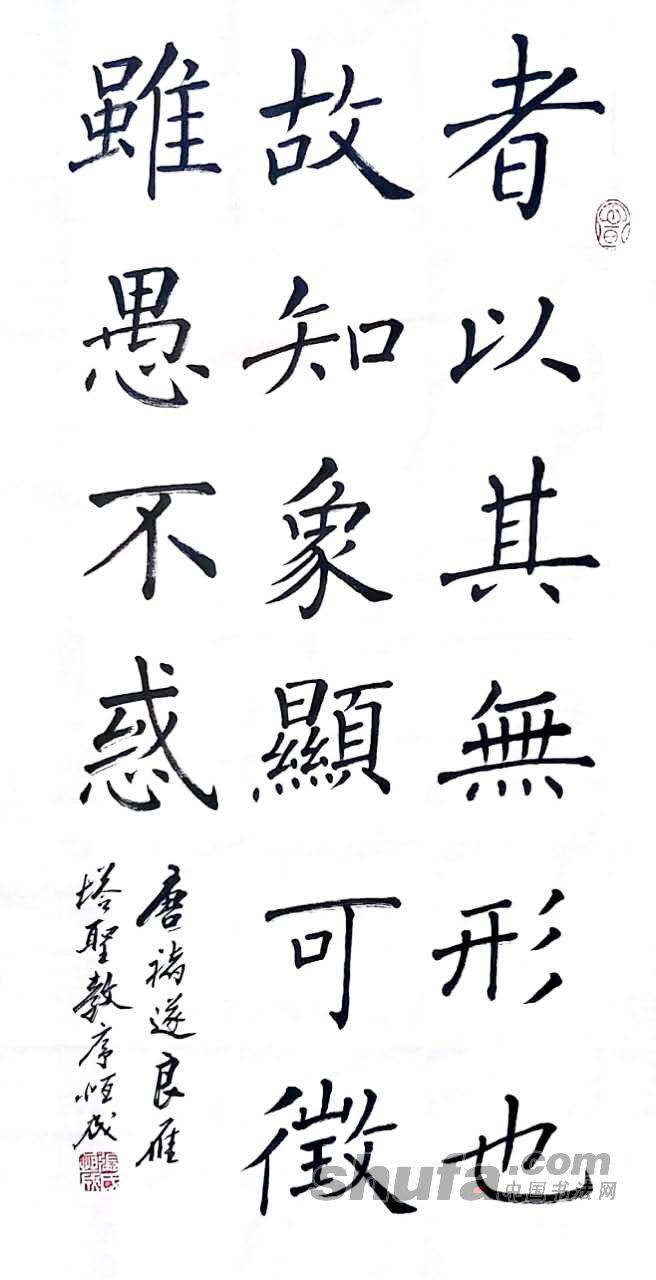 者以其無形也
故知象顯可徵
雖愚不惑
唐褚遂良雁
塔聖教序恒成
shufa.com
中国书法网